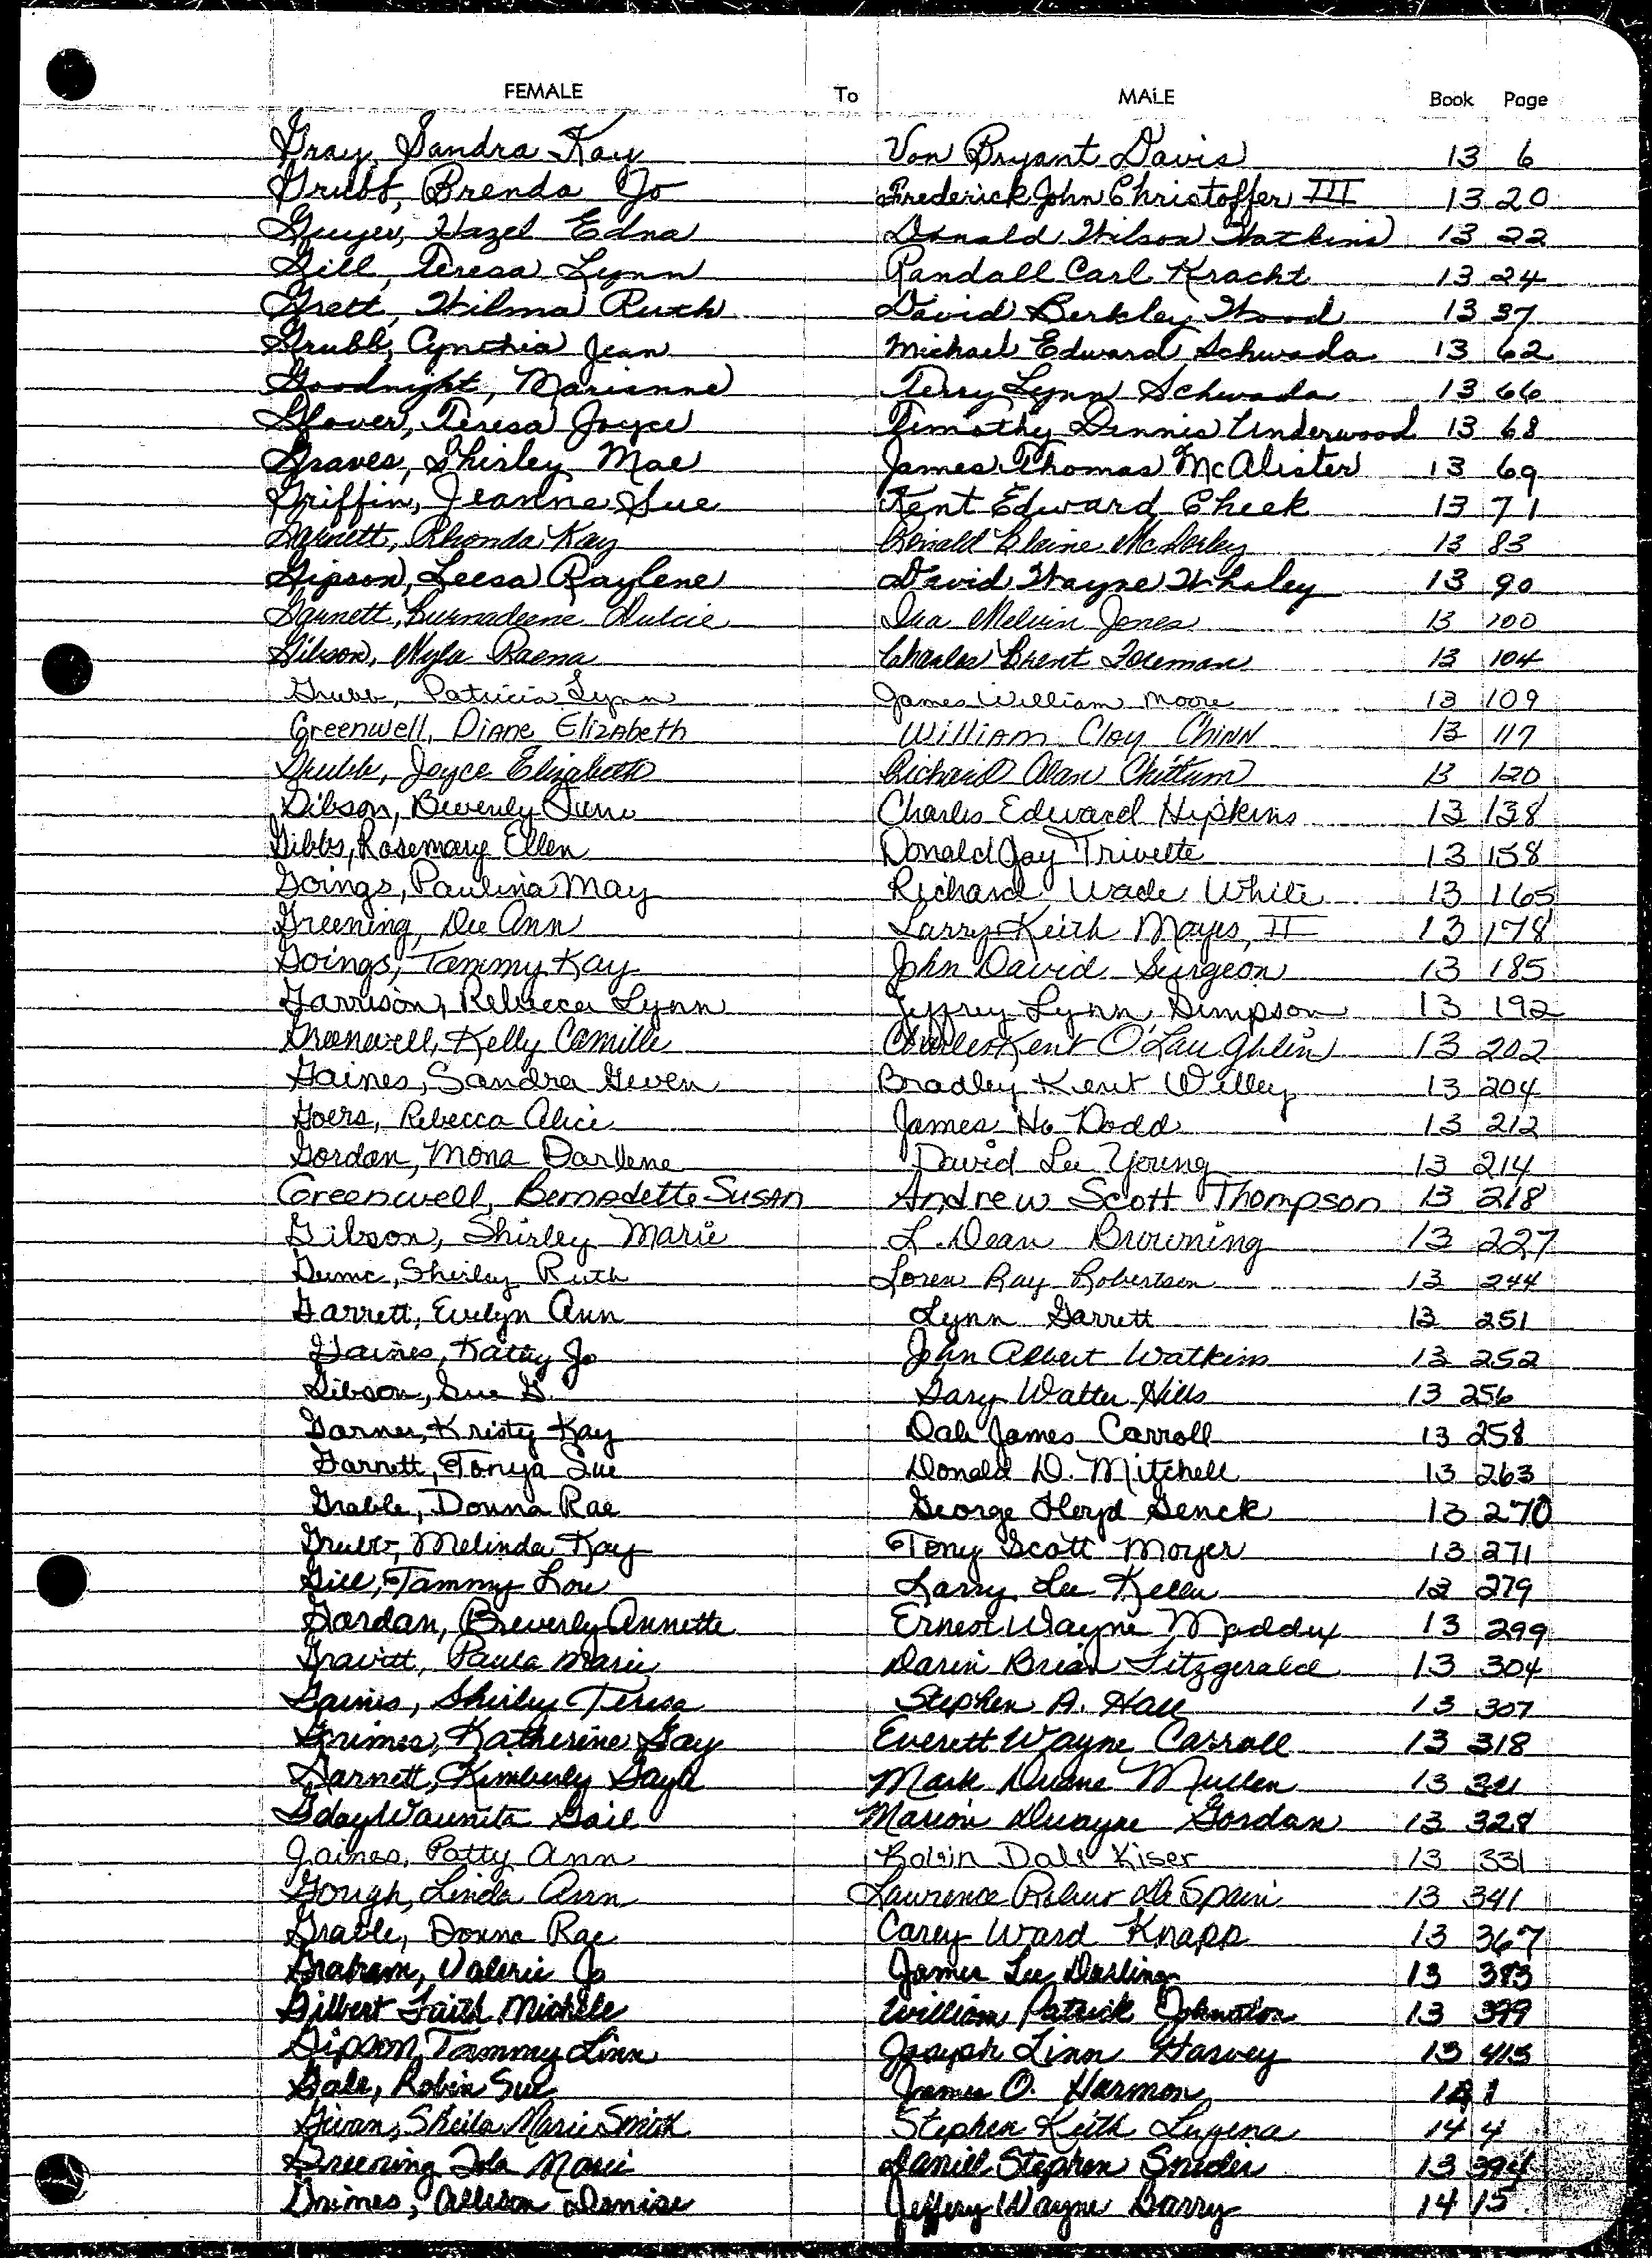 FEMALE To MALE Book Page
Gray, Sandra Kay Von Bryant Davis 13 6
Grubb, Brenda Jo Frederick John Christoffer III 13 20
Guyer, Hazel Edna Donald Wilson Watkins 13 22
Gill, Teresa Lynn Randall Carl Kracht 13 24
Grett, Wilma Ruth David Berkley Wood 13 37
Grubb, Cynthia Jean Michael Edward Schwada 13 62
Goodnight, Marianne Terry Lynn Schwada 13 66
Glover, Teresa Joyce Timothy Dennis Underwood 13 68
Graves, Shirley Mae James Thomas McAlister 13 69
Griffin, Jeanne Sue Kent Edward Cheek 13 71
Garnett, Rhonda Kay Ronald Blaine 13 83
Gipson, Leesa Raylene David Wayne Whaley 13 90
Garnett, Burnadeene Dulcie Ira Melvin Jones 13 100
Gibson, Myla Raena Charles Brent Foreman 13 104
Grubb, Patricia Lynn James William Moore 13 109
Greenwell, Diane Elizabeth William Clay Chinn 13 117
Grubb, Joyce Elizabeth Richard Alan Chittum 13 120
Gibson, Beverly June Charles Edward Hipkins 13 138
Gibbs, Rosemary Ellen Donald Jay Trivette 13 158
Goings, Paulina May Richard Wade White 13 165
Greening, Dee Ann Larry Keith Mayes, II 13 178
Goings, Tammy Kay John David Surgeon 13 185
Garrison, Rebecca Lynn Jeffrey Lynn Simpson 13 192
Greenwell, Kelly Camille Charles Kent O'Laughlin 13 202
Gaines, Sandra Gwen Bradley Kent Willey 13 204
Goers, Rebecca Alice James Ho Dodd 13 212
Gordon, Mona Darlene David Lee Young 13 214
Greenwell, Bernadette Susan Andrew Scott Thompson 13 218
Gibson, Shirley Marie L. Dean Browning 13 227
Shirley Ruth Loren Ray Robertson 13 244
Garrett, Evelyn Ann Lynn Garrett 13 251
Gaines, Kathy Jo John Albert Watkins 13 252
Gibson, Sue G. Gary Walter Hills 13 256
Garner, Kristy Kay Dale James Carroll 13 258
Garnett, Tonya Sue Donald D. Mitchell 13 263
Grable, Donna Rae George Floyd Genck 13 270
Grubb, Melinda Kay Tony Scott Moyer 13 271
Gill, Tammy Lou Larry Lee Keller 13 279
Gordan, Beverly Annette Ernest Wayne Maddux 13 299
Gravitt, Paula Marie Darin Brian Fitzgerald 13 304
Gaines, Shirley Teresa Stephen A. Hall 13 307
Grimes, Katherine Gay Everett Wayne Carroll 13 318
Garnett, Kimberly Gayle Mark Duane Mullen 13 321
Gday Waunita Gail Marion Dwayne Gordan 13 328
Gaines, Patty Ann Robin Dale Kiser 13 331
Gough, Linda Ann Lawrence Robert DeSpain 13 341
Grable, Donna Rae Carey Ward Knapp 13 367
Graham, Valerie Jo James Lee Darling 13 383
Gilbert Faith Michele William Patrick Johnston 13 399
Gipson, Tammy Linn Joseph Linn Harvey 13 413
Gale, Robin Sue James O. Harmon 1
Givan, Sheila Marie Smith Stephen Keith Lugena 14 4
Greening Ida Marie Daniel Stephen Snider 13 394
Grimes, Allison Denise Jeffery Wayne Barry 14 15